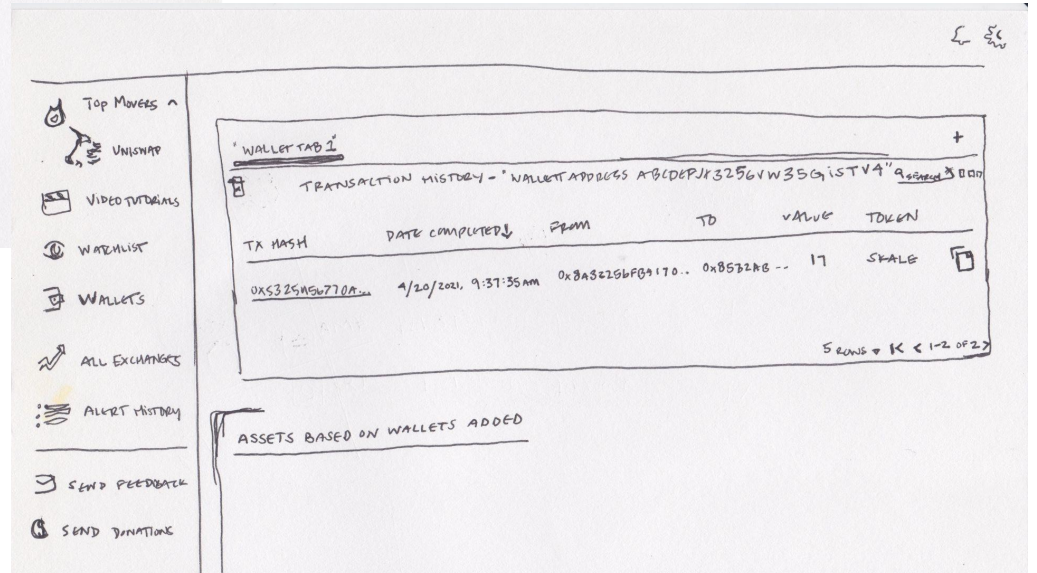 TOP MOVERS ^
UNISWAP
VIDEO TUTORIALS
WATCHLIST
WALLETS
ALL EXCHANGES
ALERT HISTORY
SEND FEEDBACK
SEND DONATIONS
"WALLET TAB 1"
+
TRANSACTION HISTORY - "WALLET ADDRESS SEARCH X
TX HASH DATE COMPLETED↓ FROM TO VALUE TOKEN
4/20/2021, 9:37:35 AM 0x8A32256FB9170.. 0x8532AB -- 17 SKALE
5 ROWS ▾ K < 1-2 OF 2 >
ASSETS BASED ON WALLETS ADDED